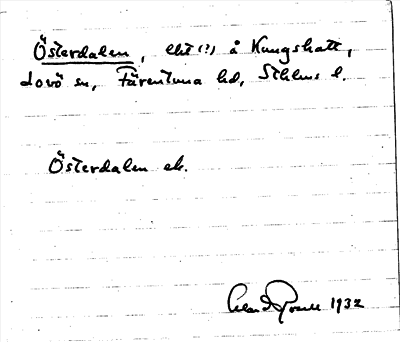 Österdalen, elit (?) å Kungshatt,
Lovö sn, Färentuna hd, Sthlms l.
Österdalen ek.
1932